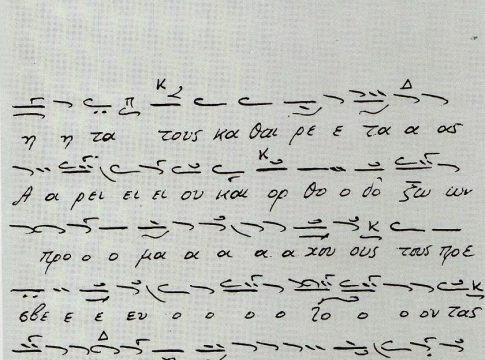 η η τα τους και θαι ρε ε τα α ας
Α α ρει ει ει ου και ορ θο ο δο ξω ων
προ ο ο μα α α α α χου ους τους πρε
σβε ε ε ευ ο ο ο ο ο ο ο ον τας